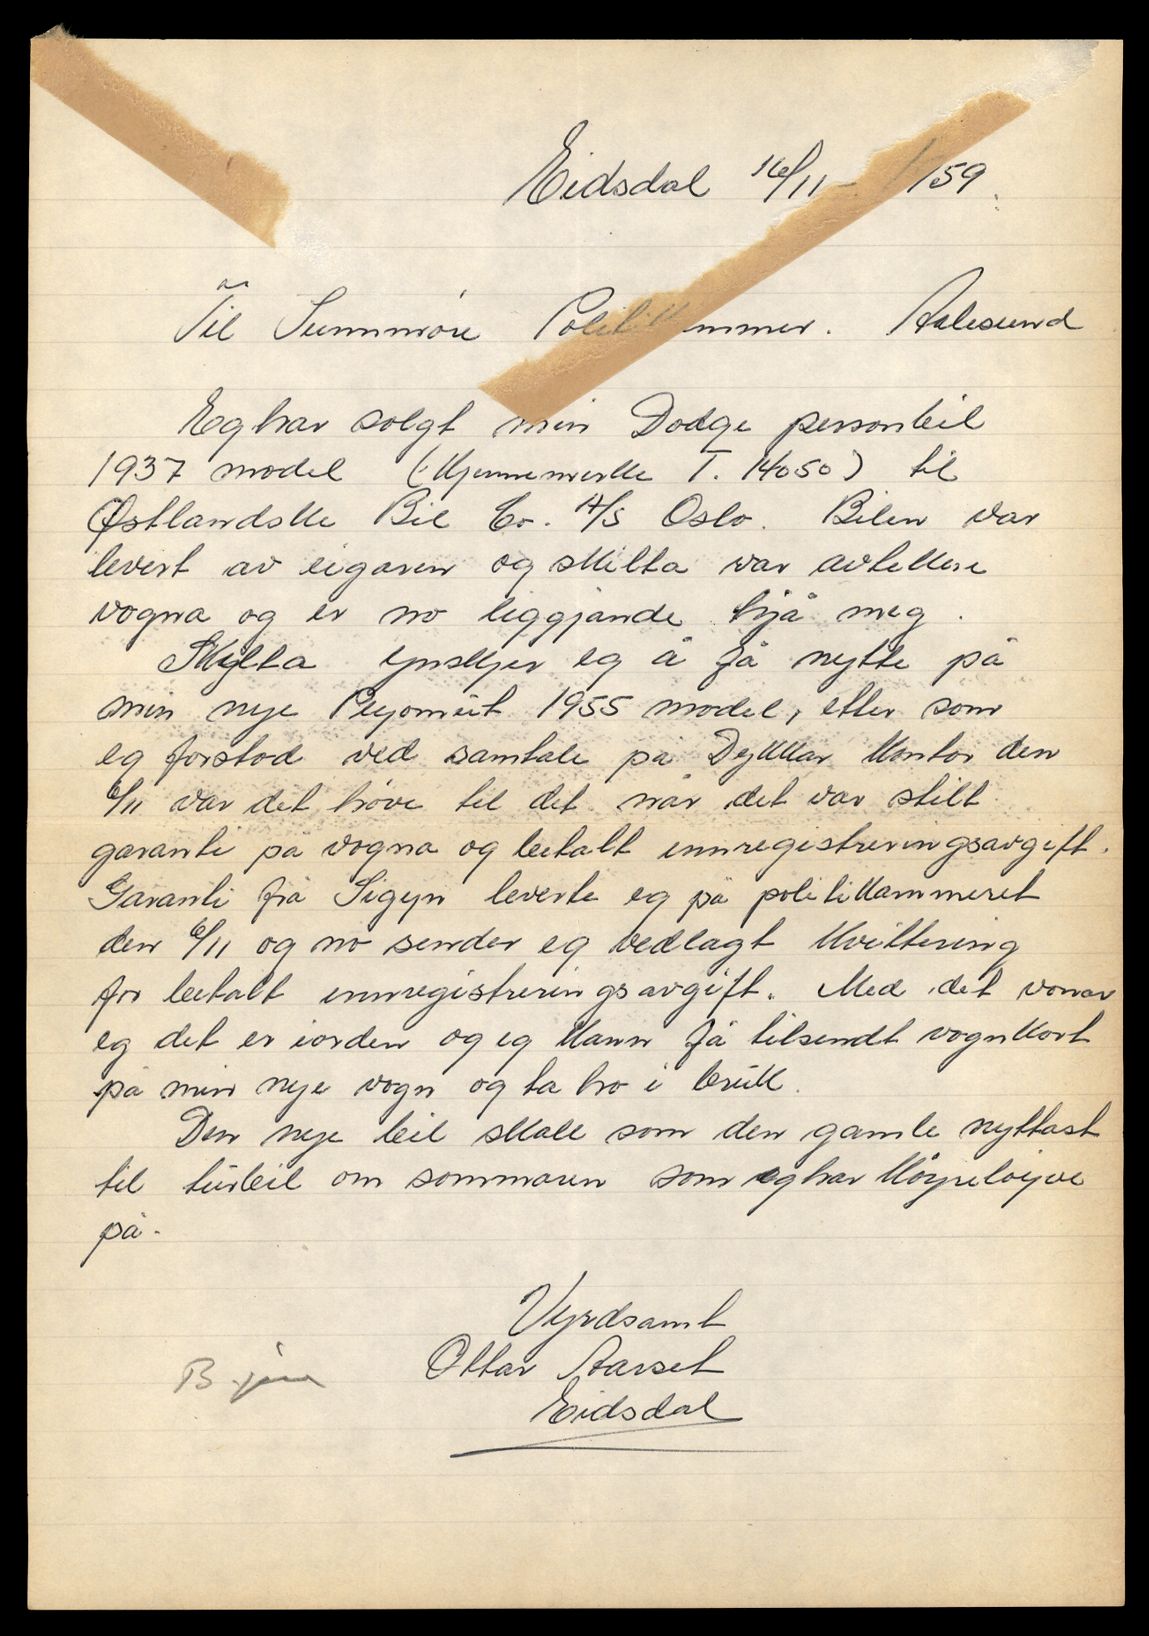 Eidsdal 16/11 - 1959.
Til Sunnmøre Politikammer. Aalesund
Eg har solgt min Dodge personbil
1937 model (Kjennemerke T. 14050) til
Østlandske Bil Co. A/S Oslo. Bilen var
levert av eigaren og skilta var avtekne
vogna og er no liggjande hjå meg.
Skylta ynskjer eg å få nytte på
min nye 1955 model, etter som
eg forstod ved samtale på Dykkar kontor den
6/11 var det høve til det når det var stilt
garanti på vogna og betalt innregistreringsavgift.
Garanti frå Sigyn leverte eg på politikammeret
den 6/11 og no sender eg vedlagt kvittering
for betalt innregistreringsavgift. Med det vonar
eg det er iorden og eg kann få tilsendt vognkort
på min nye vogn og ta ho i bruk.
Den nye bil skall som den gamle nyttast
til turbil om sommaren som eg har köyrelöyve
på.
Vyrdsamt
Ottar Aarset
Eidsdal